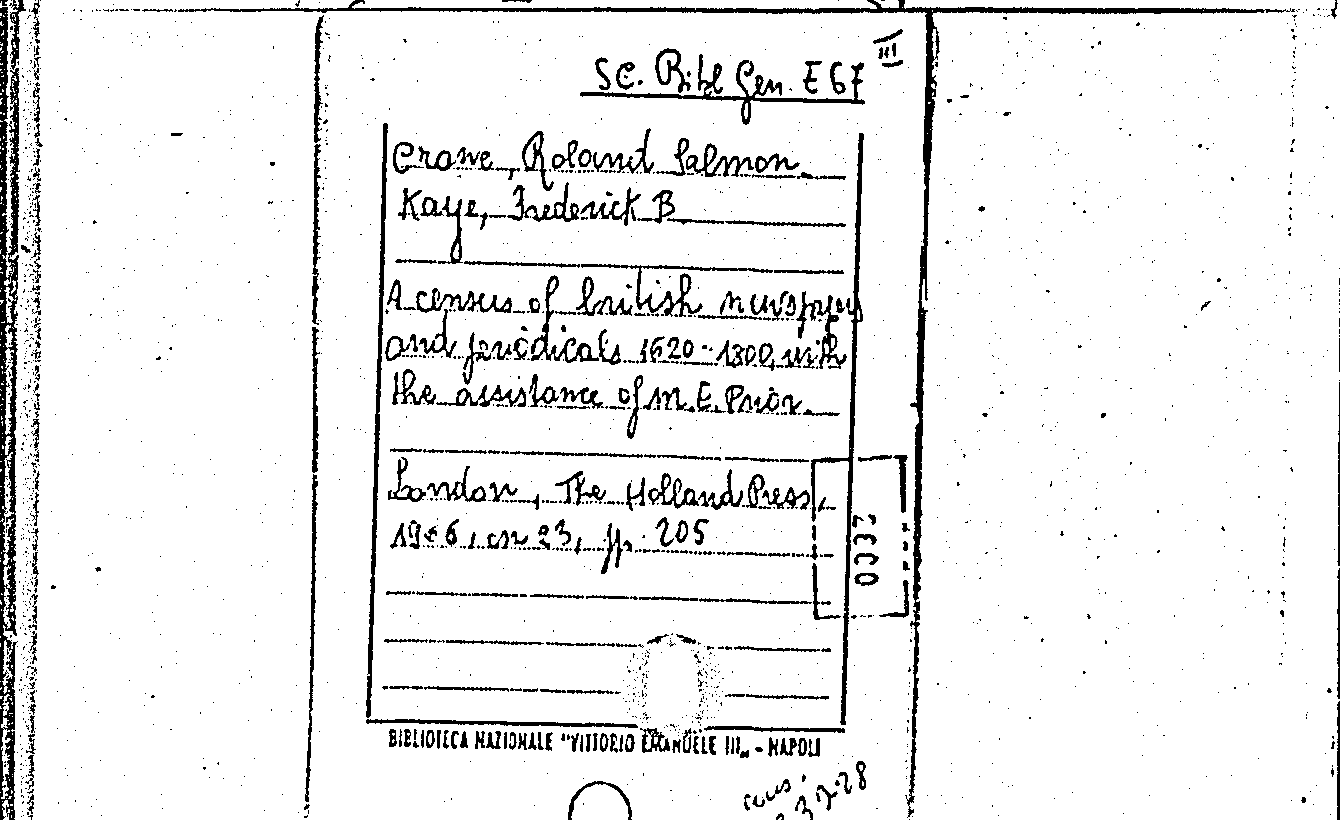 III
SC. Bibl Gen. E 67
Crane, Roland Salmon.
Kaye, Frederick B
A census of british newspapers
and periodicals 1620-1800, with
the assistance of M.E. Prior.
London, The Holland Press,
1966, cm 23, pp. 205
ZCCO
BIBLIOTECA NAZIONALE "VITTORIO EMANUELE III„ - NAPOLI